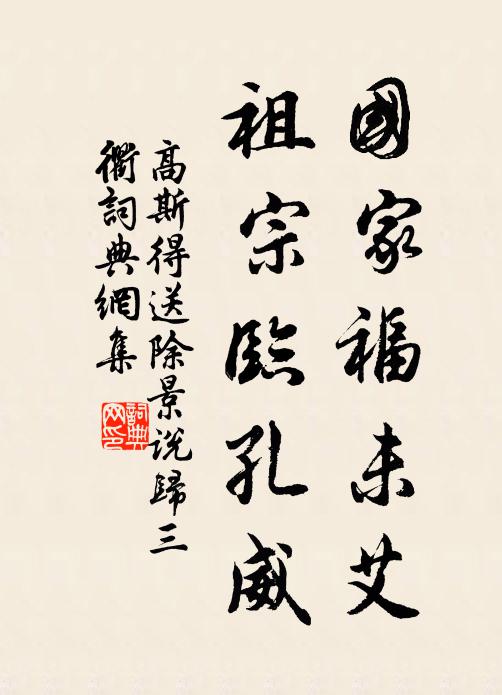 國家福未艾
祖宗臨孔威
高斯得送除景说歸三
衢詞典網集
詞典
网印